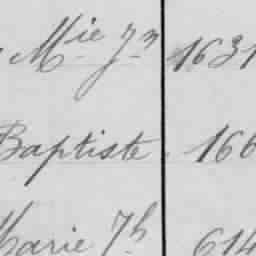 Mie Jn 1631
Baptiste 166
Marie Jh 614